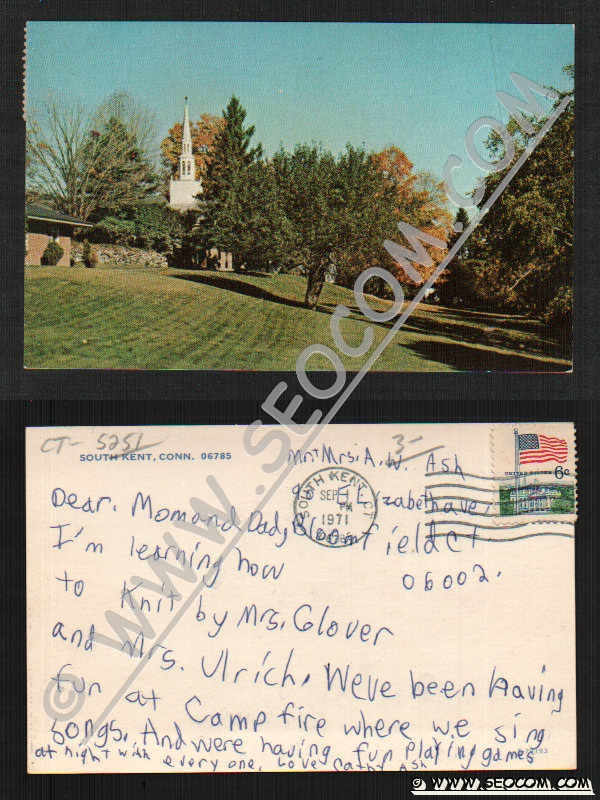 © WWW.SEOCOM.COM
CT- 5251
SOUTH KENT, CONN. 06785
3-
Mr+Mrs. A. W. Ash
Elizabeth ave.
Bloomfield ct
06002.
SOUTH KENT, CT
SEP
PM
1971
UNITED STATES
6c
Dear. Mom and Dad,
I'm learning how
to Knit by Mrs. Glover
and Mrs. Ulrich. We've been Having
fun at Camp fire where we sing
songs. And were having fun playing games
at night with every one. Love Cathy Ash
© WWW.SEOCOM.COM